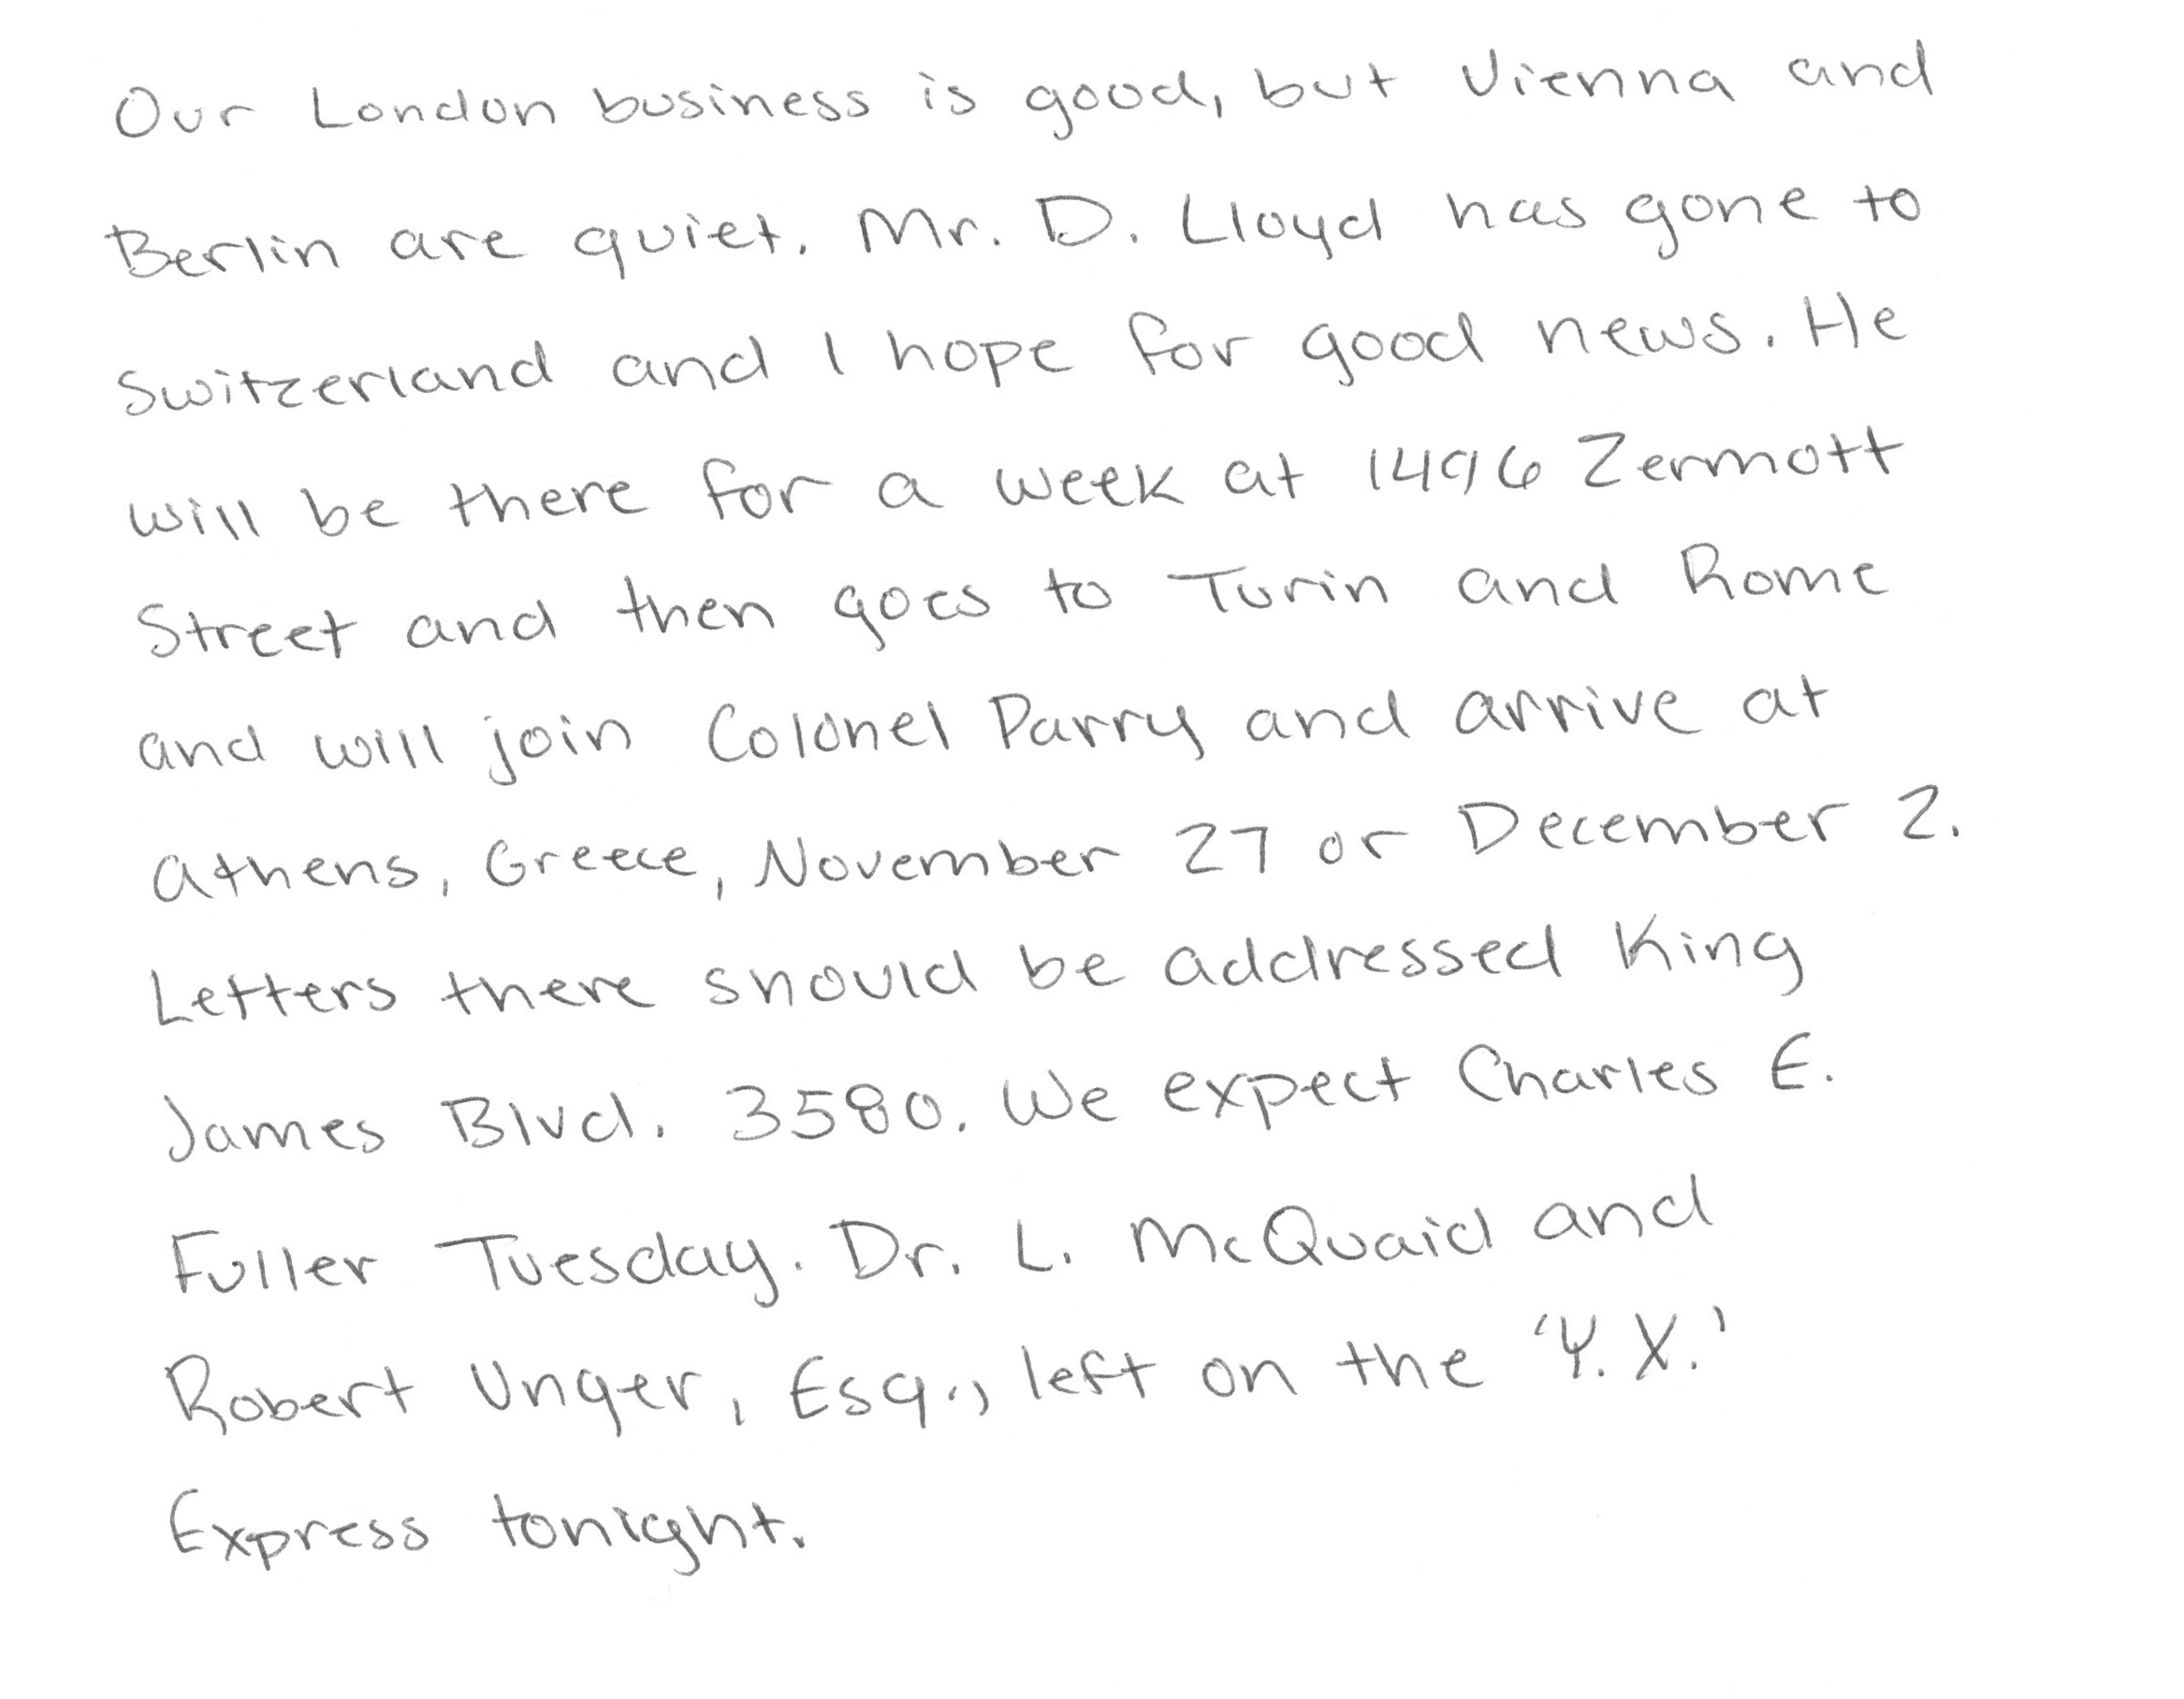 Our London business is good, but Vienna and
Berlin are quiet. Mr. D. Lloyd has gone to
Switzerland and I hope for good news. He
will be there for a week at 1496 Zermott
Street and then goes to Turin and Rome
and will join Colonel Parry and arrive at
Athens, Greece, November 27 or December 2.
Letters there should be addressed King
James Blvd. 3580. We expect Charles E.
Fuller Tuesday. Dr. L. McQuaid and
Robert Unger, Esq., left on the 'Y.X.'
Express tonight.